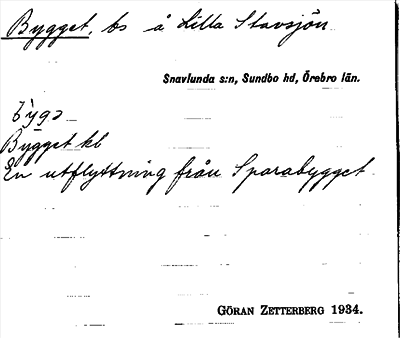 Bygget, bs å Lilla Stavsjön
Snavlunda s:n, Sundbo hd, Örebro län.
Bygget kb
En utflyttning från Sparabygget
GÖRAN ZETTERBERG 1934.